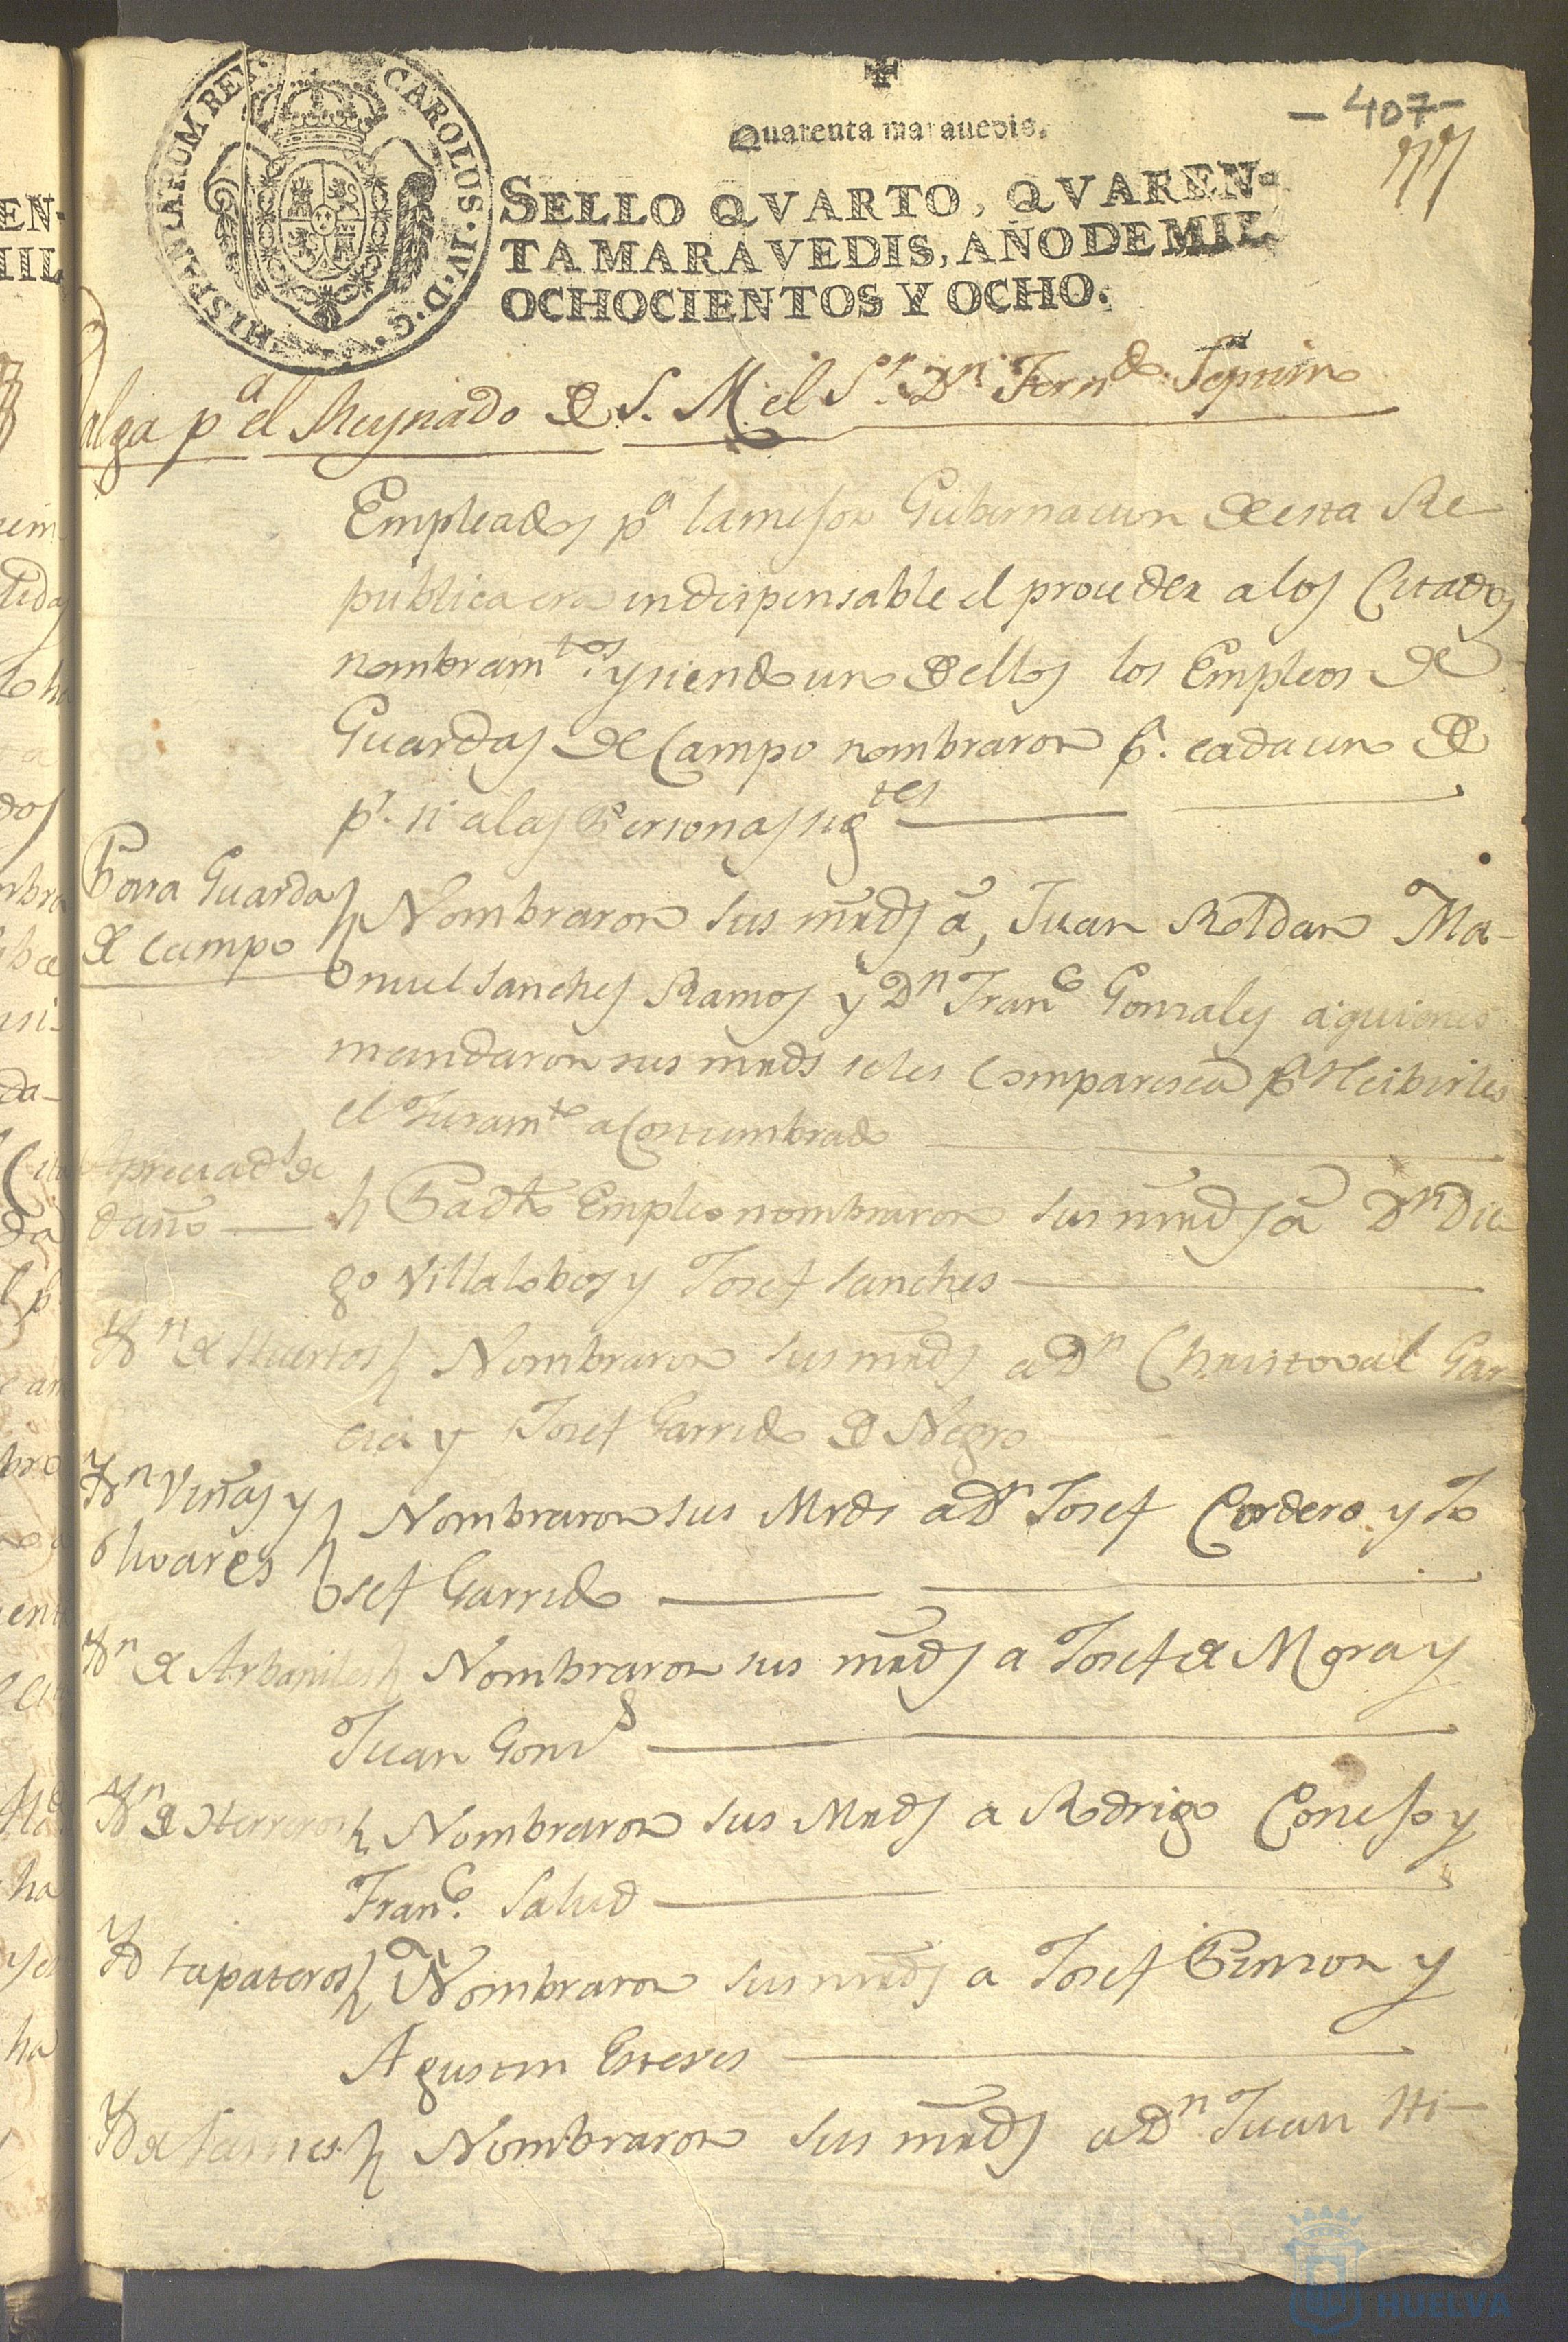 - 407 -
Quarenta maravedis.
HISPANIARUM REX. CAROLUS. IV. D. G.
SELLO QVARTO, QVAREN-
TA MARAVEDIS, AÑO DE MIL
OCHOCIENTOS Y OCHO.
Valga pª el Reynado de S. M. el Sr. Dn Ferndo Septimo
Empleados pª la mejor Gubernacion de esta Re
publica era indispensable el proceder a los Citados
nombramtos. y siendo uno de ellos los Empleos de
Guardas de Campo nombraron pr. cada uno de
pr. si a las Personas sigtes
Para Guarda
de Campo
Nombraron sus mrds a, Juan Roldan Ma-
nuel Sanches Ramos y Dn Franco Gonzales a quienes
mandaron sus mrds se les comparesca pª Recibirles
el Juramto acostumbrado
Apreciads de
daño
Pª dho Empleo nombraron sus mrds a Dn Die
go Villalobos y Josef Sanches
Ydn de Huertos
Nombraron sus mrds a Dn Christoval Gar-
cia y Josef Garrido de Negro
Ydn Viñas y
olivares
Nombraron sus Mrds a Dn Josef Cordero y Jo
sef Garrido
Ydn de Arbaniles
Nombraron sus mrds a Josef de Mora y
Juan Gonzs
Ydn de Herreros
Nombraron sus Mrds a Rodrigo Conejo y
Franco. Salud
Yd Sapateros
Nombraron sus mrds a Josef Pinzon y
Agustin Esteves
Yd de Sastres
Nombraron sus mrds a Dn Juan Hi-
HUELVA